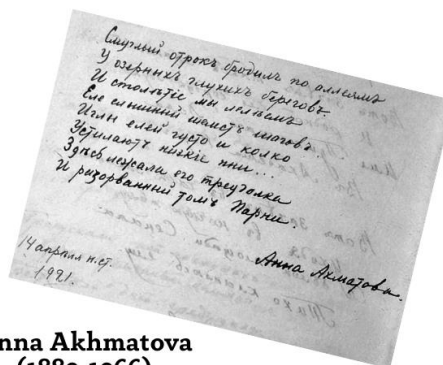 Смуглый отрокъ бродилъ по аллеямъ
У озерныхъ глухихъ береговъ.
И столѣтіе мы лелѣемъ
Еле слышный шелестъ шаговъ.
Иглы елей густо и колко
Устилаютъ низкіе пни...
Здѣсь лежала его треуголка
И разорванный томъ Парни.
Анна Ахматова.
14 апрѣля н.ст.
1921.
nna Akhmatova
(1889-1966)